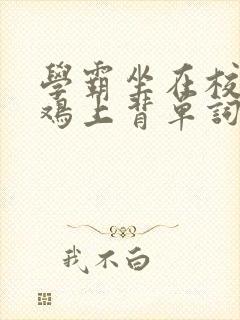 學霸坐在校
鸡上背單詞
我不白